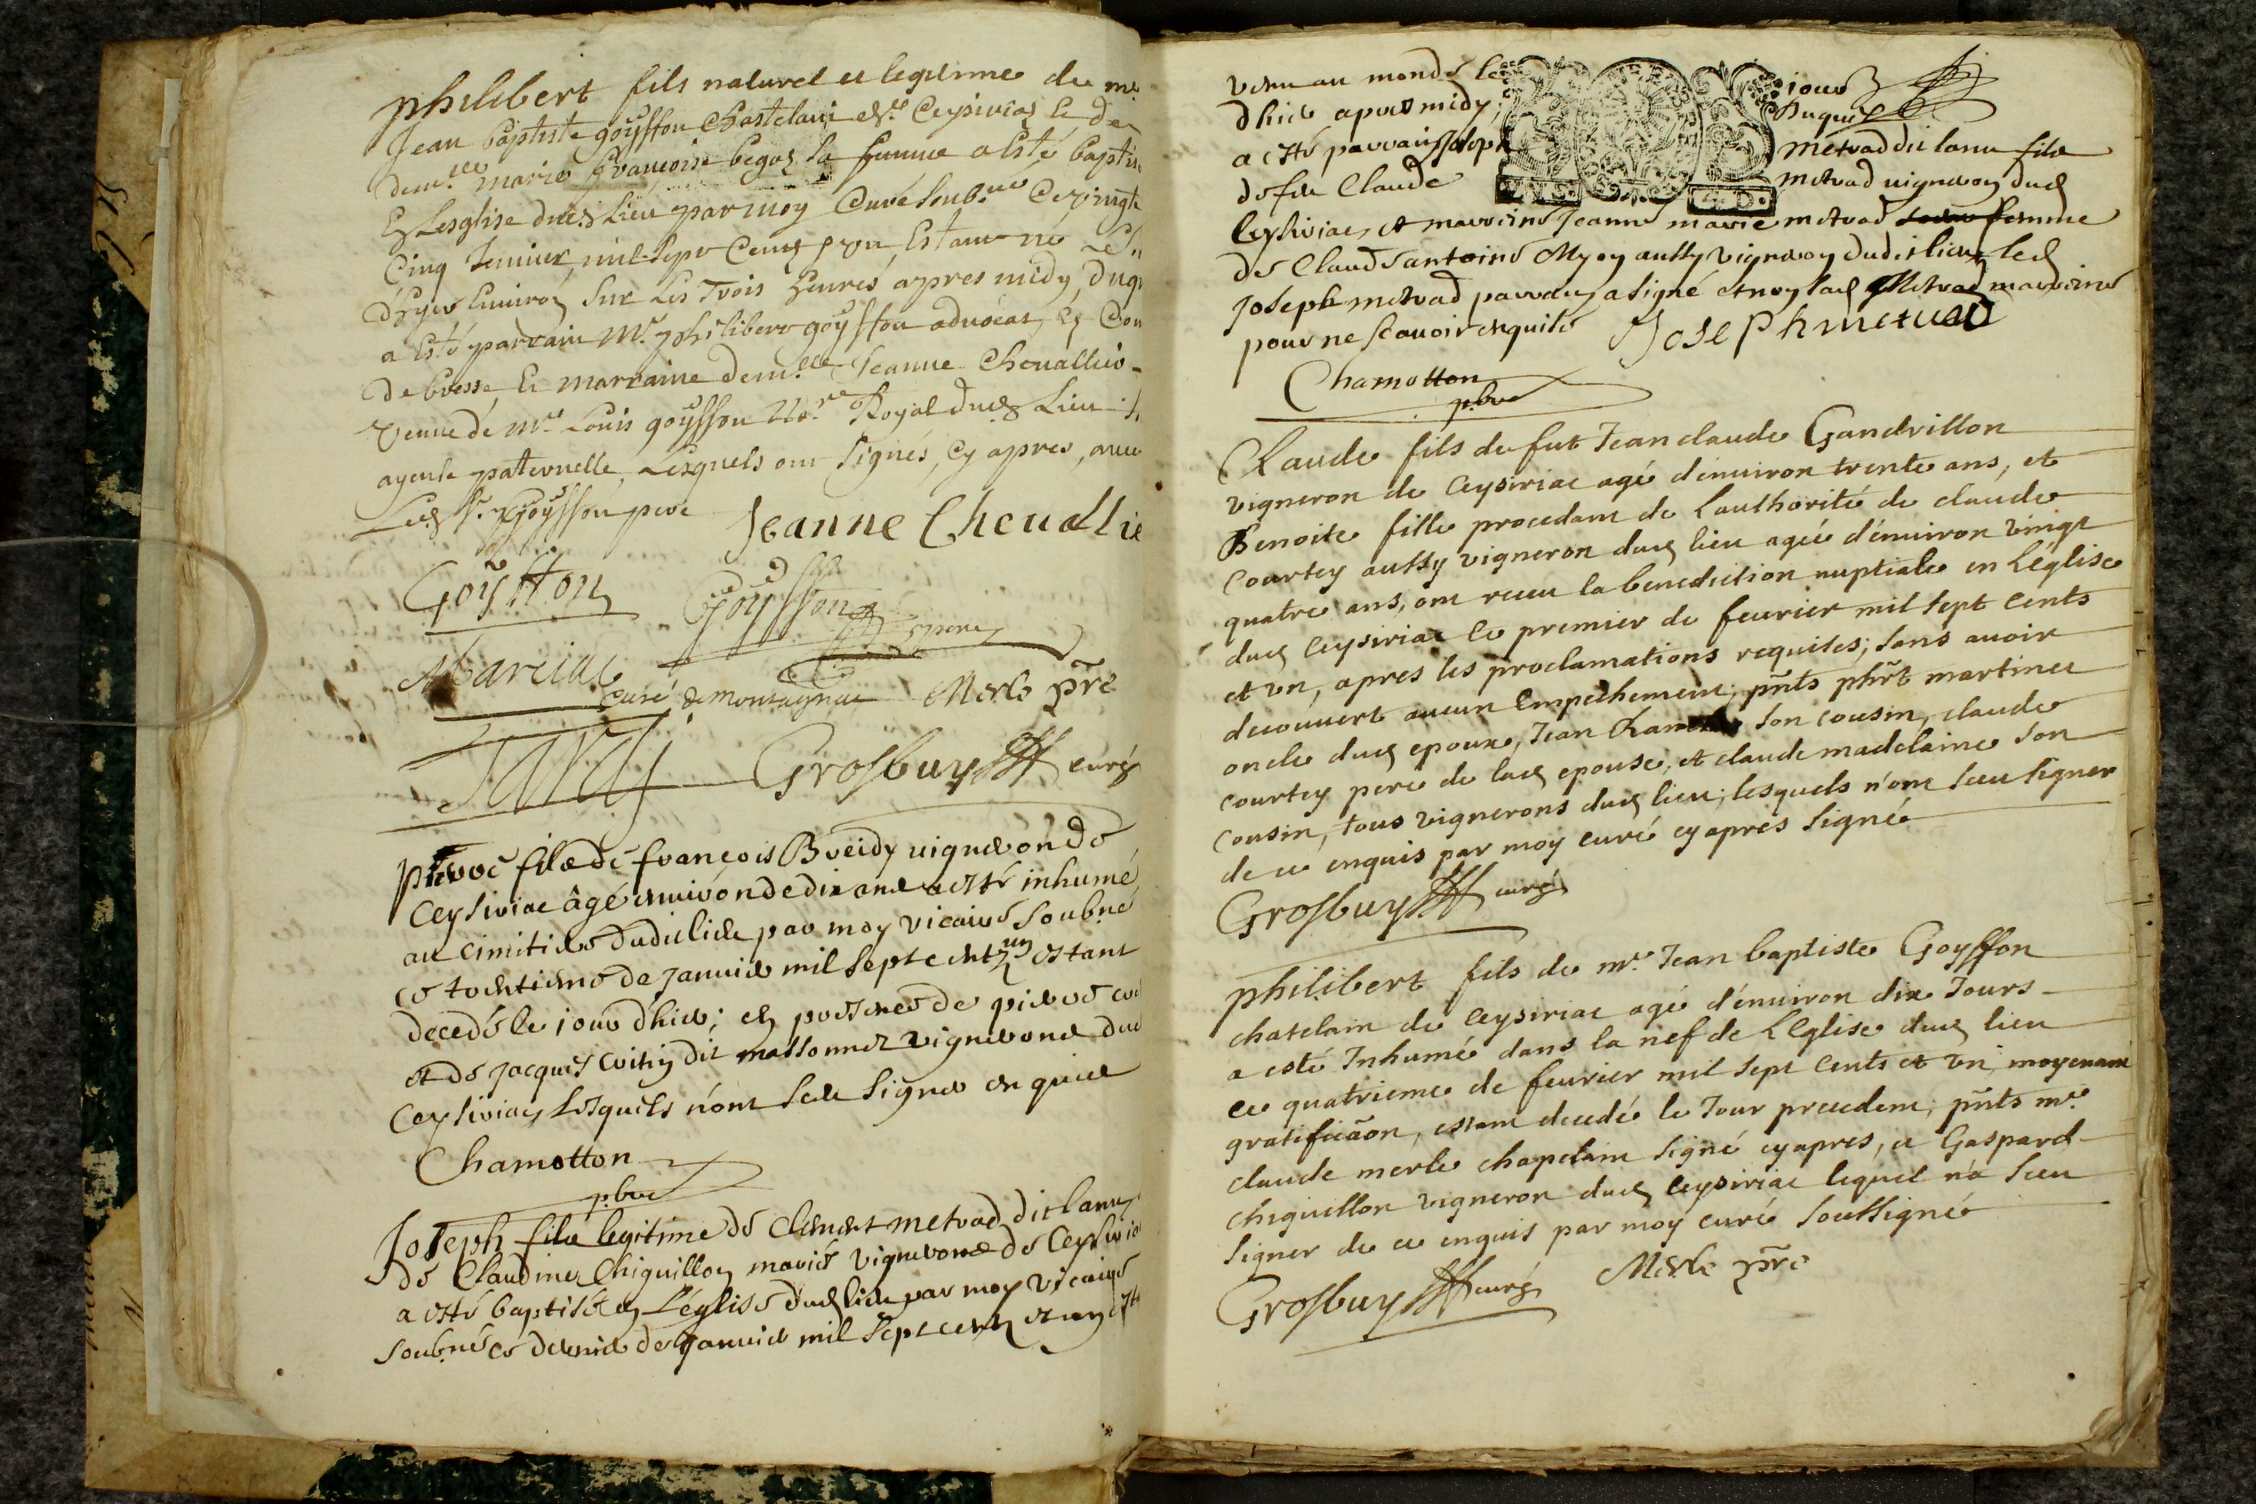 philibert fils naturel et legitime de mr
Jean baptiste goyffon Chastelain de Ceysiriat et de
demlle marie françoise begoz sa femme a esté baptisé
En Lesglise dud Lieu par moy Curé soubné Ce vingt
Cinq Janvier mil sept Cents et un Estant né
d'hyer Environ sur Les Trois heures apres midy, duq
a Esté parrain Mr philibert goyffon advocat,
de bresse, Et marraine demlle Jeanne Chevallier
veuve de mre Louis goyffon Nore Royal dud Lieu
ayeule paternelle, Lesquels ont signés, Cy apres, avec
Led Sr goyffon pere Jeanne Chevallie
Goyffon Goyffon
pere
Marciat
Curé de montagnat Merle pre
Grosbuy curé
pierre fils de françois Breidy vigneron de
Ceysiriac âgé environ de dix ans a esté inhumé
au cimitiere dudit lieu par moy vicaire soubné
ce trentieme de janvier mil sept cent un estant
decedé le jour d'hier; en presence de pierre
et de jacques dit massonnet vignerons dud
Ceysiriac, lesquels n'ont sceu signer enquis
Chamotton
pbre
Joseph fils legitime de Clement metrad dit lanu
de Claudine Chiguillon mariés vignerons de Ceysiriat
a esté baptisé en l'église dud lieu par moy vicaire
soubné ce dernier de janvier mil sept cent et un
venu au monde le jour
d'hier apres midy, duquel
a esté parrain Joseph metrad dit lanu fils
de feu Claude metrad vigneron dud
Ceysiriac, et marraine jeanne marie metrad femme
de Claude antoine Myon aussy vigneron dudit lieu, led
joseph metrad parrain a signé et non lad Metrad marraine
pour ne scavoir enquise Joseph metrad
Chamotton
pbre
Claude fils de fut Jean claude Gandrillon
vigneron de Ceysiriac agé d'environ trente ans, et
Benoite fille procedant de l'authorité de claude
Courtey aussy vigneron dud lieu agée d'environ vingt
quatre ans, ont receu la benediction nuptiale en L'église
dud Ceysiriac le premier de fevrier mil sept cents
et un, apres les proclamations requises; sans avoir
decouvert aucun Empechement; pnts phrt martinet
oncle dud epoux, Jean son cousin, claude
courtey pere de lad epouse, et claude madelaine son
cousin, tous vignerons dud lieu; lesquels n'ont sceu signer
de ce enquis par moy curé cy apres signé
Grosbuy curé
philibert fils de mre Jean baptiste Goyffon
chatelain de Ceysiriac agé d'environ dix Jours
a esté Inhumé dans la nef de L'Eglise dud lieu
ce quatrieme de fevrier mil sept cents et un, moyenant
gratificãon, estant decedé le Jour precedent; pnts mre
claude merle chapelain signé cy apres, et Gaspard
chiguillon vigneron dud Ceysiriac lequel n'a sceu
signer de ce enquis par moy curé soussigné
Grosbuy curé Merle pre